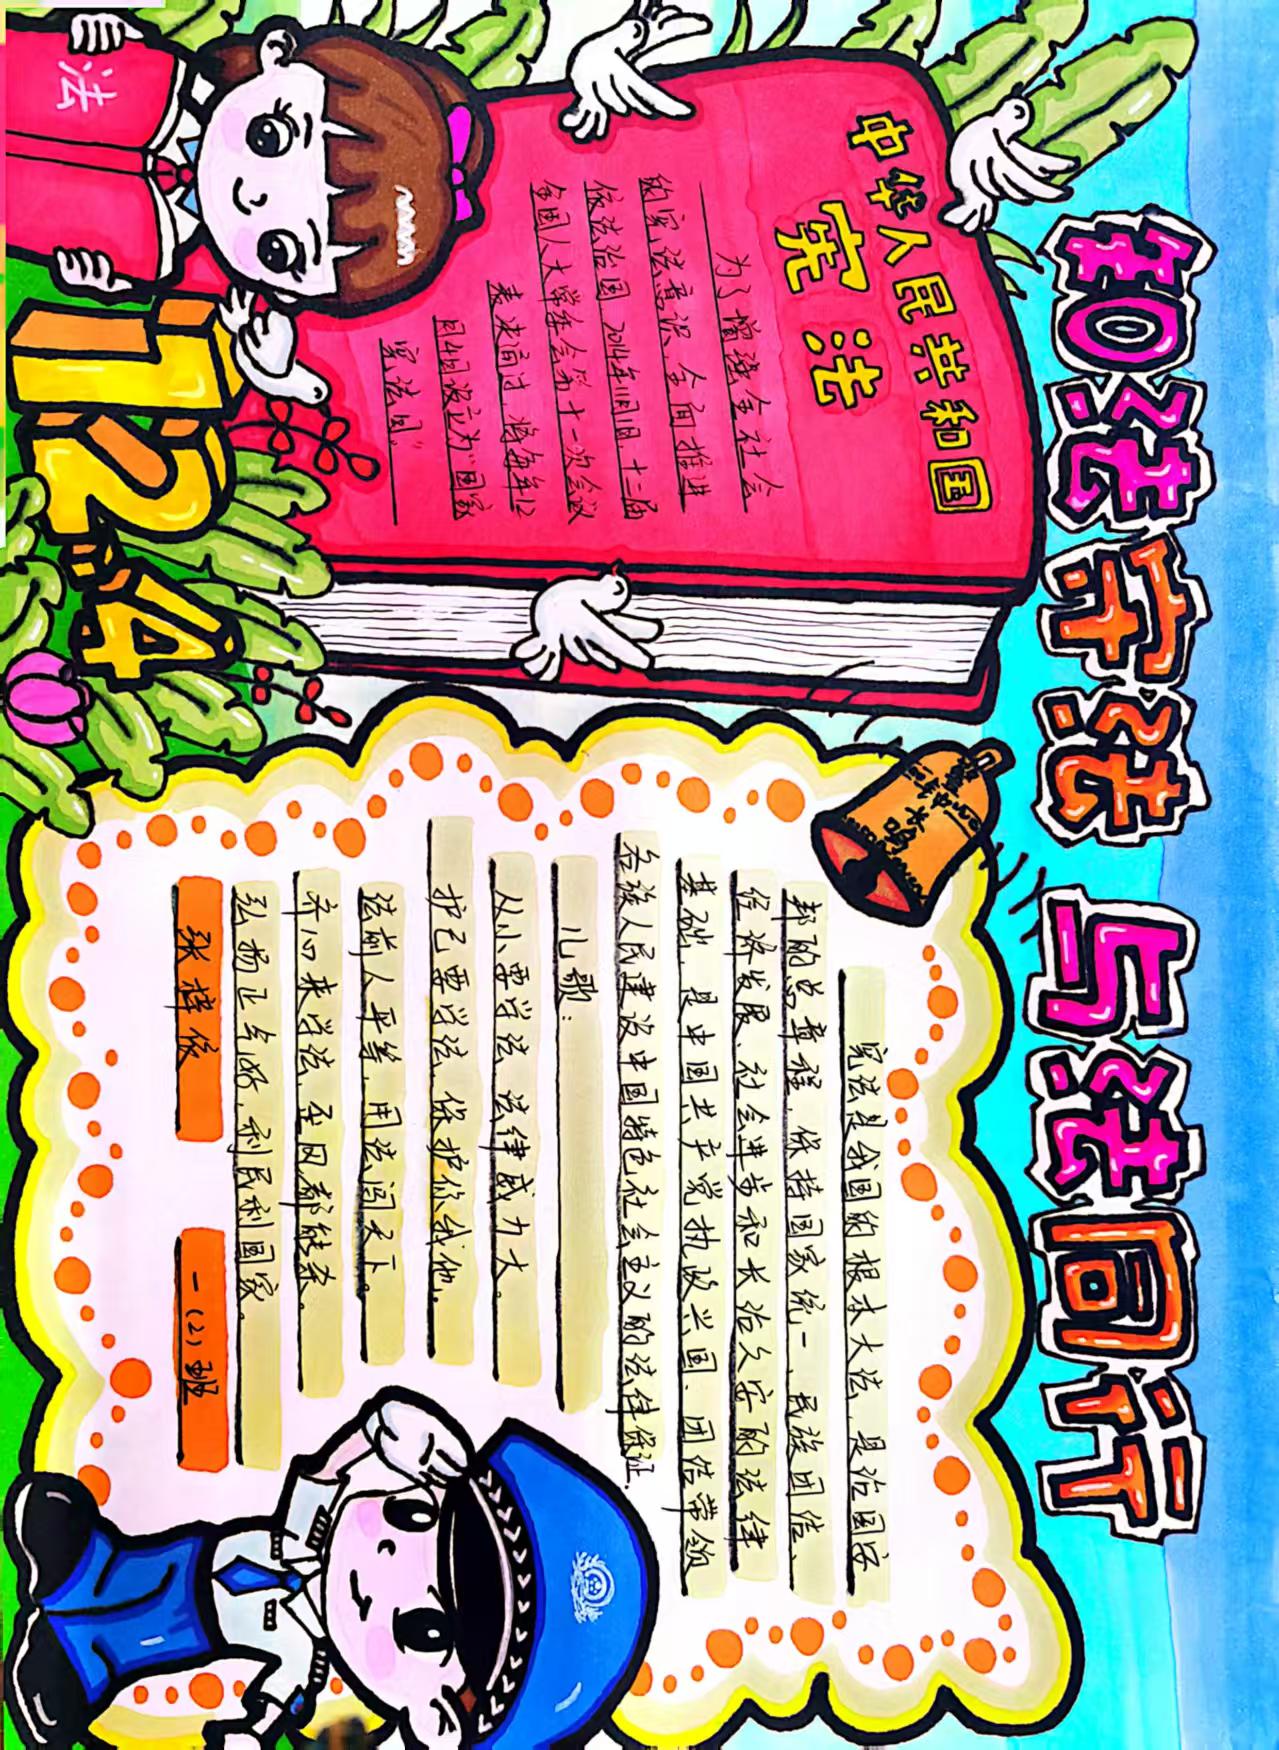 知法守法 与法同行
中华人民共和国
宪法
为了增强全社会
的宪法意识，全面推进
依法治国，2014年11月1日，十二届
全国人大常委会第十一次会议
表决通过，将每年12
月4日设立为“国家
宪法日。”
法
12.4
宪法是我国的根本大法，是治国安
邦的总章程，保持国家统一、民族团结、
经济发展、社会进步和长治久安的法律
基础，是中国共产党执政兴国、团结带领
各族人民建设中国特色社会主义的法律保证.
儿歌：
从小要学法，法律威力大。
护己要学法，保护你我他。
法前人平等，用法闯天下。
齐心来学法，歪风都能杀。
弘扬正气好，利民利国家.
张梓依
一（2）班